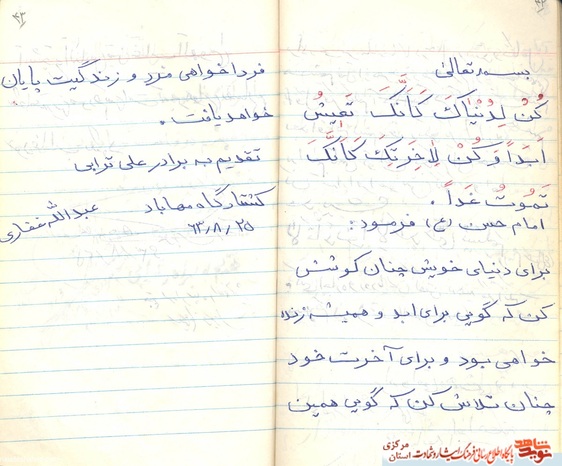 ۴۲
بسمه تعالی
کُنْ لِدُنْیٰاکَ کَاَنَّکَ تَعیٖشُ
اَبَدَاً وَ کُنْ لِاٰخِرَتِکَ کَاَنَّکَ
تَمُوتُ غَداً .
امام حسن (ع) فرمود :
برای دنیای خویش چنان کوشش
کن که گویی برای ابد و همیشه زنده
خواهی بود و برای آخرت خود
چنان تلاش کن که گویی همین
۴۳
فردا خواهی مرد و زندگیت پایان
خواهد یافت .
تقدیم به برادر علی ترابی
کشتارگاه مهاباد
عبدالله غفاری
۶۳/۸/۲۵
نوید شاهد
پایگاه اطلاع رسانی فرهنگ ایثار و شهادت استان مرکزی